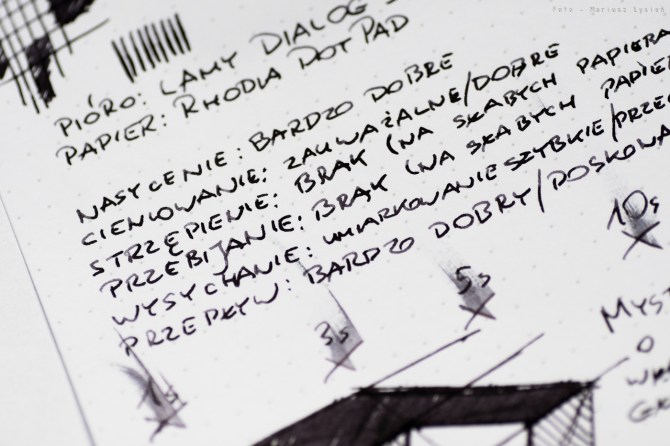 Foto - Mariusz Łysień
PIÓRO: LAMY DIALOG
PAPIER: RHODIA DOT PAD
NASYCENIE: BARDZO DOBRE
CIENIOWANIE: ZAUWAŻALNE/DOBRE
STRZĘPIENIE: BRAK (NA SŁABYCH PAPIERA
PRZEBIJANIE: BRAK (NA SŁABYCH PAPIER
WYSYCHANIE: UMIARKOWANIE SZYBKIE/PRZE
PRZEPŁYW: BARDZO DOBRY/DOSKONA
1s
3s
5s
10s
MYST
O
GR